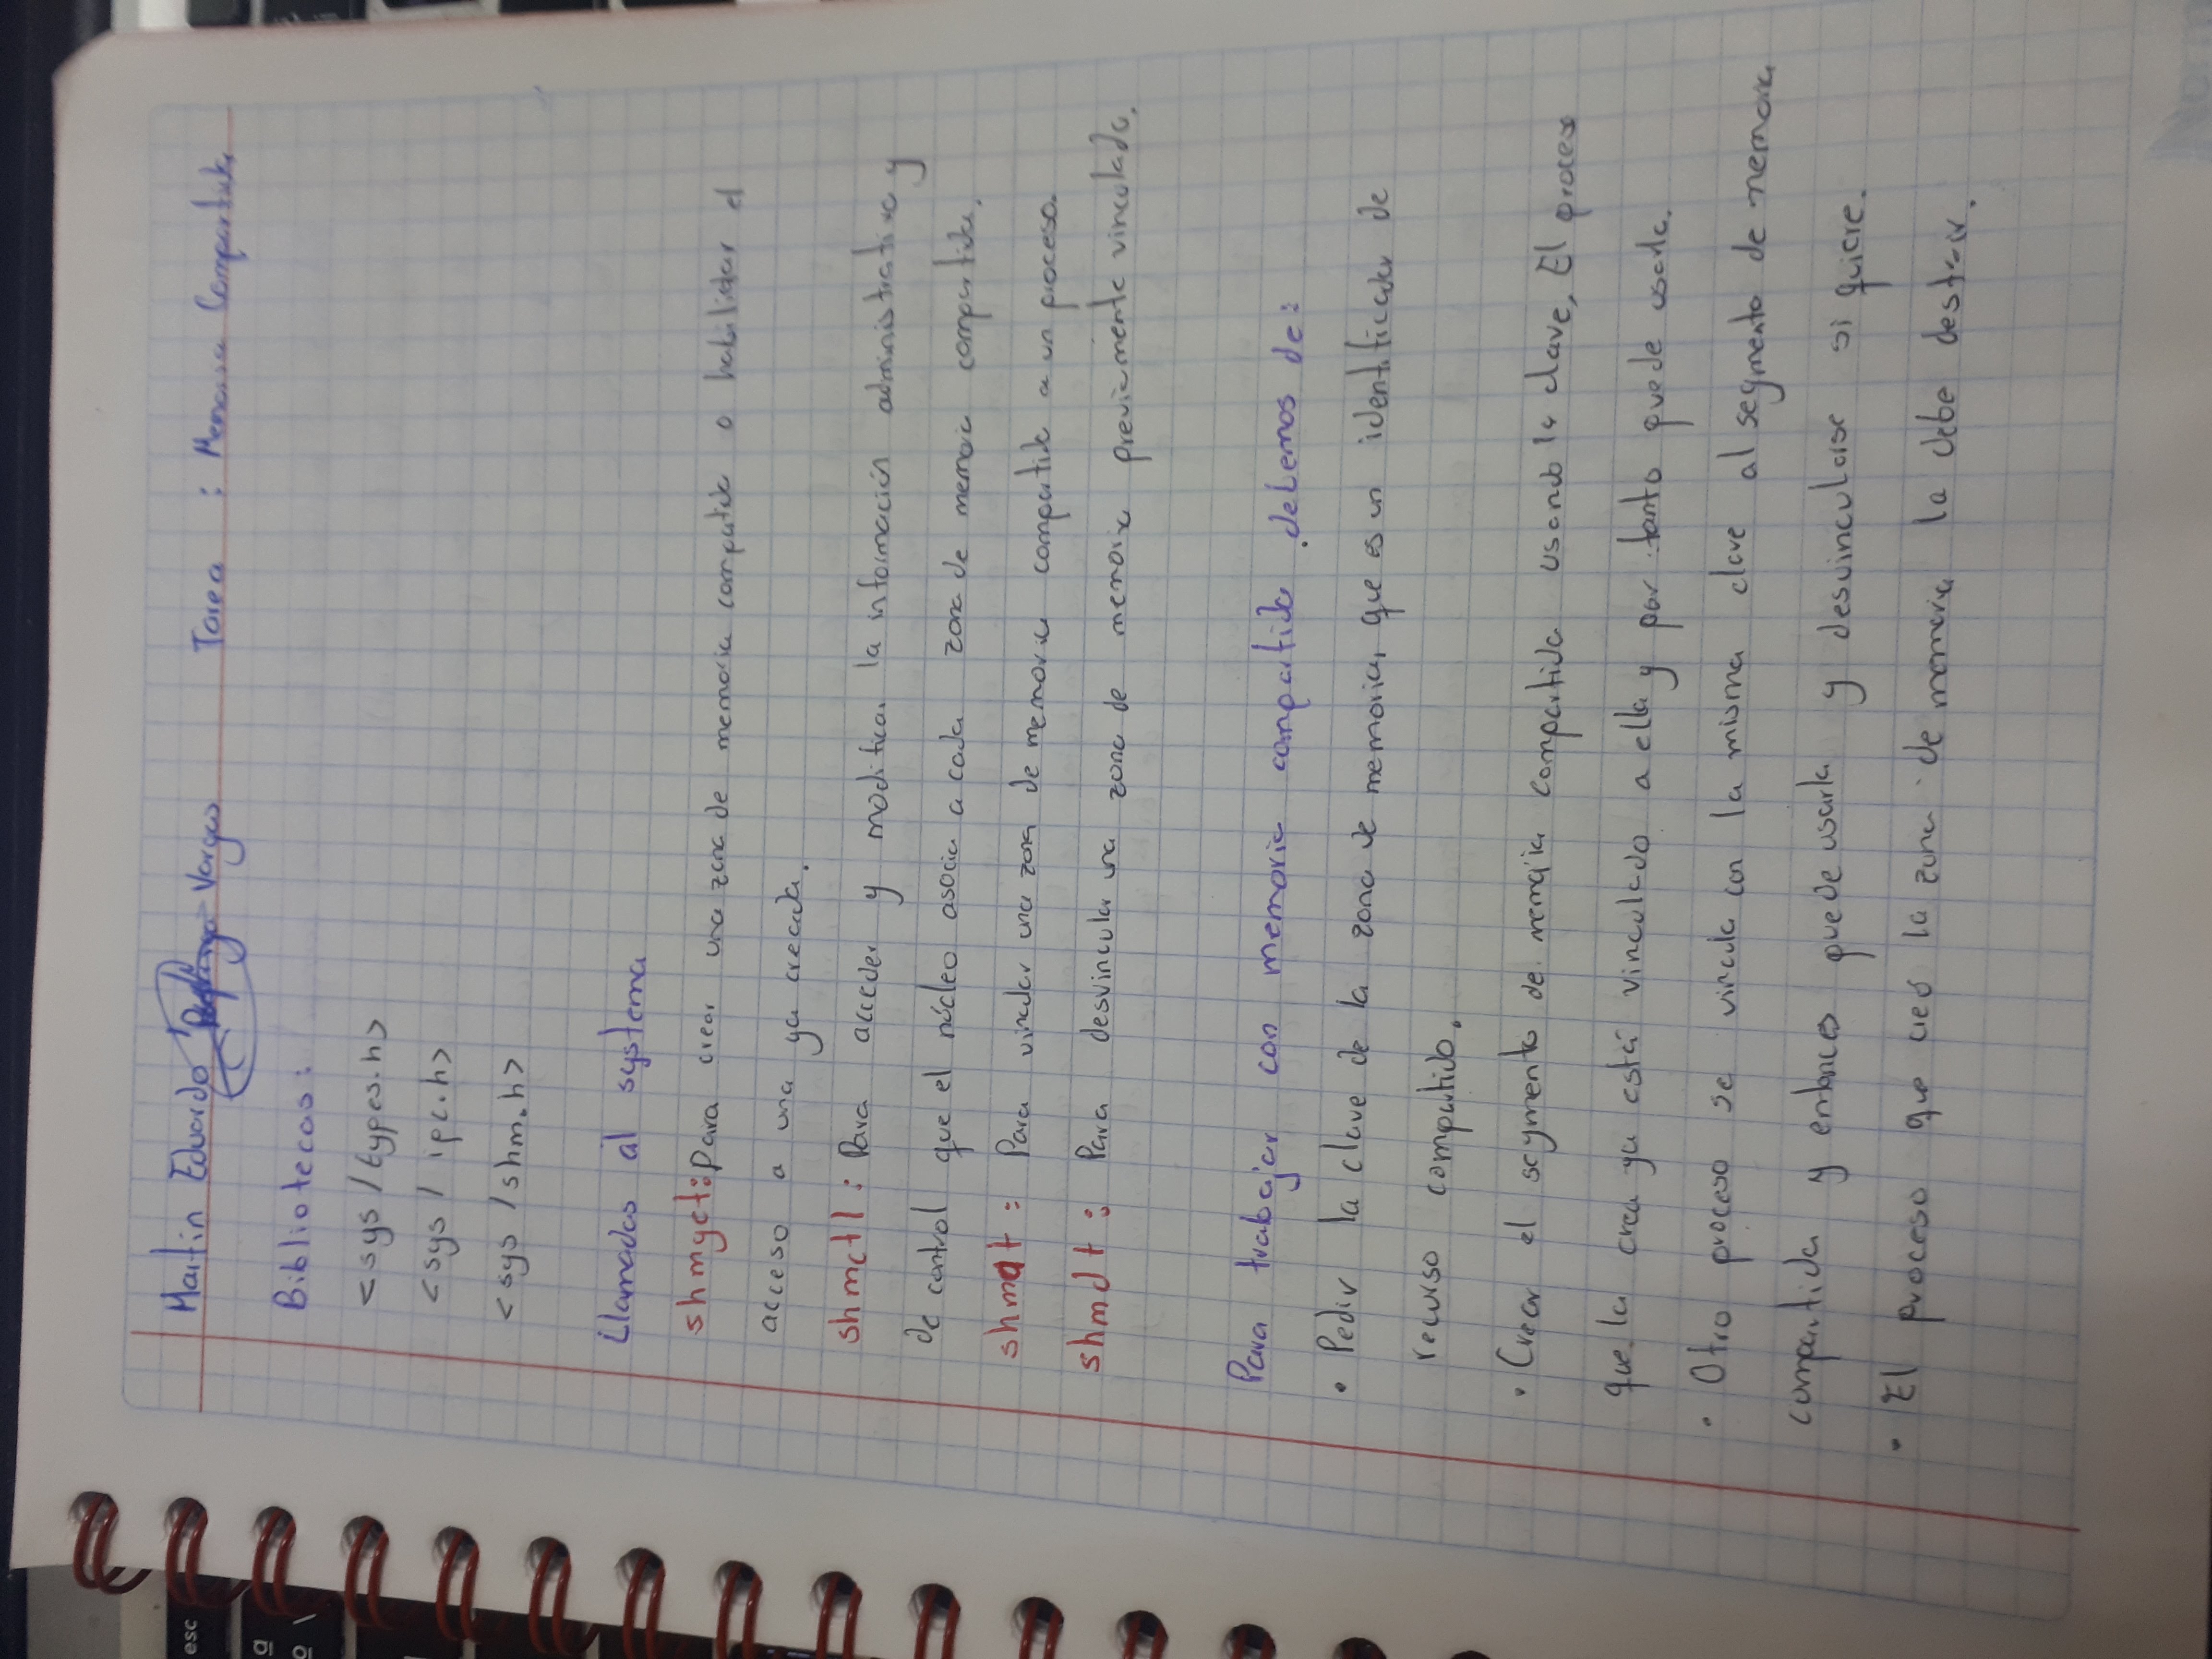 Martin Eduardo Vargas Tarea : Memoria Compartida
Bibliotecas:
<sys/types.h>
<sys/ ipc.h>
<sys/shm.h>
Llamadas al systema
shmget: Para crear una zona de memoria compatida o habilidar el
acceso a una ya creada.
shmctl: Para acceder y modificar la información administrativa y
de control que el núcleo asocia a cada zona de memoria compartida.
shmat: Para vincular una zona de memoria compatida a un proceso.
shmdt: Para desvincular una zona de memoria previamente vinculada.
Para trabajar con memoria compartida debemos de:
• Pedir la clave de la zona de memoria, que es un identificador de
recurso compartido.
• Crear el segmento de memoria compartida usando la clave, El proceso
que la crea ya está vinculado a ella y por tanto puede usarla.
• Otro proceso se vincula con la misma clave al segmento de memoria
compartida y entonces puede usarla y desvincularse si quiere.
• El proceso que creó la zona de memoria la debe destruir.
esc